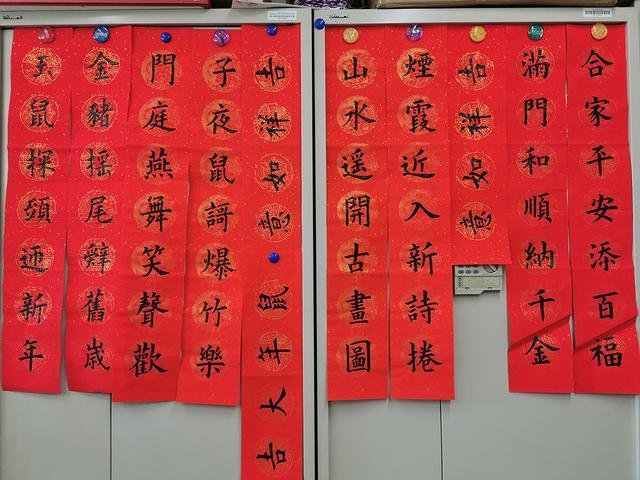 合家平安添百福
滿門和順納千金
吉祥如意
煙霞近入新詩捲
山水遥開古畫圖
吉祥如意
鼠年大吉
子夜鼠謌爆竹樂
門庭燕舞笑聲歡
金豬摇尾辭舊歳
玉鼠探頭迎新年